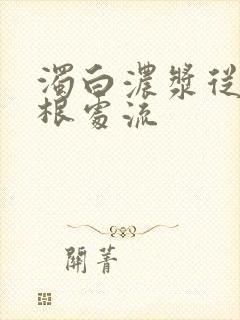 濁白濃漿從
根處流
關菁